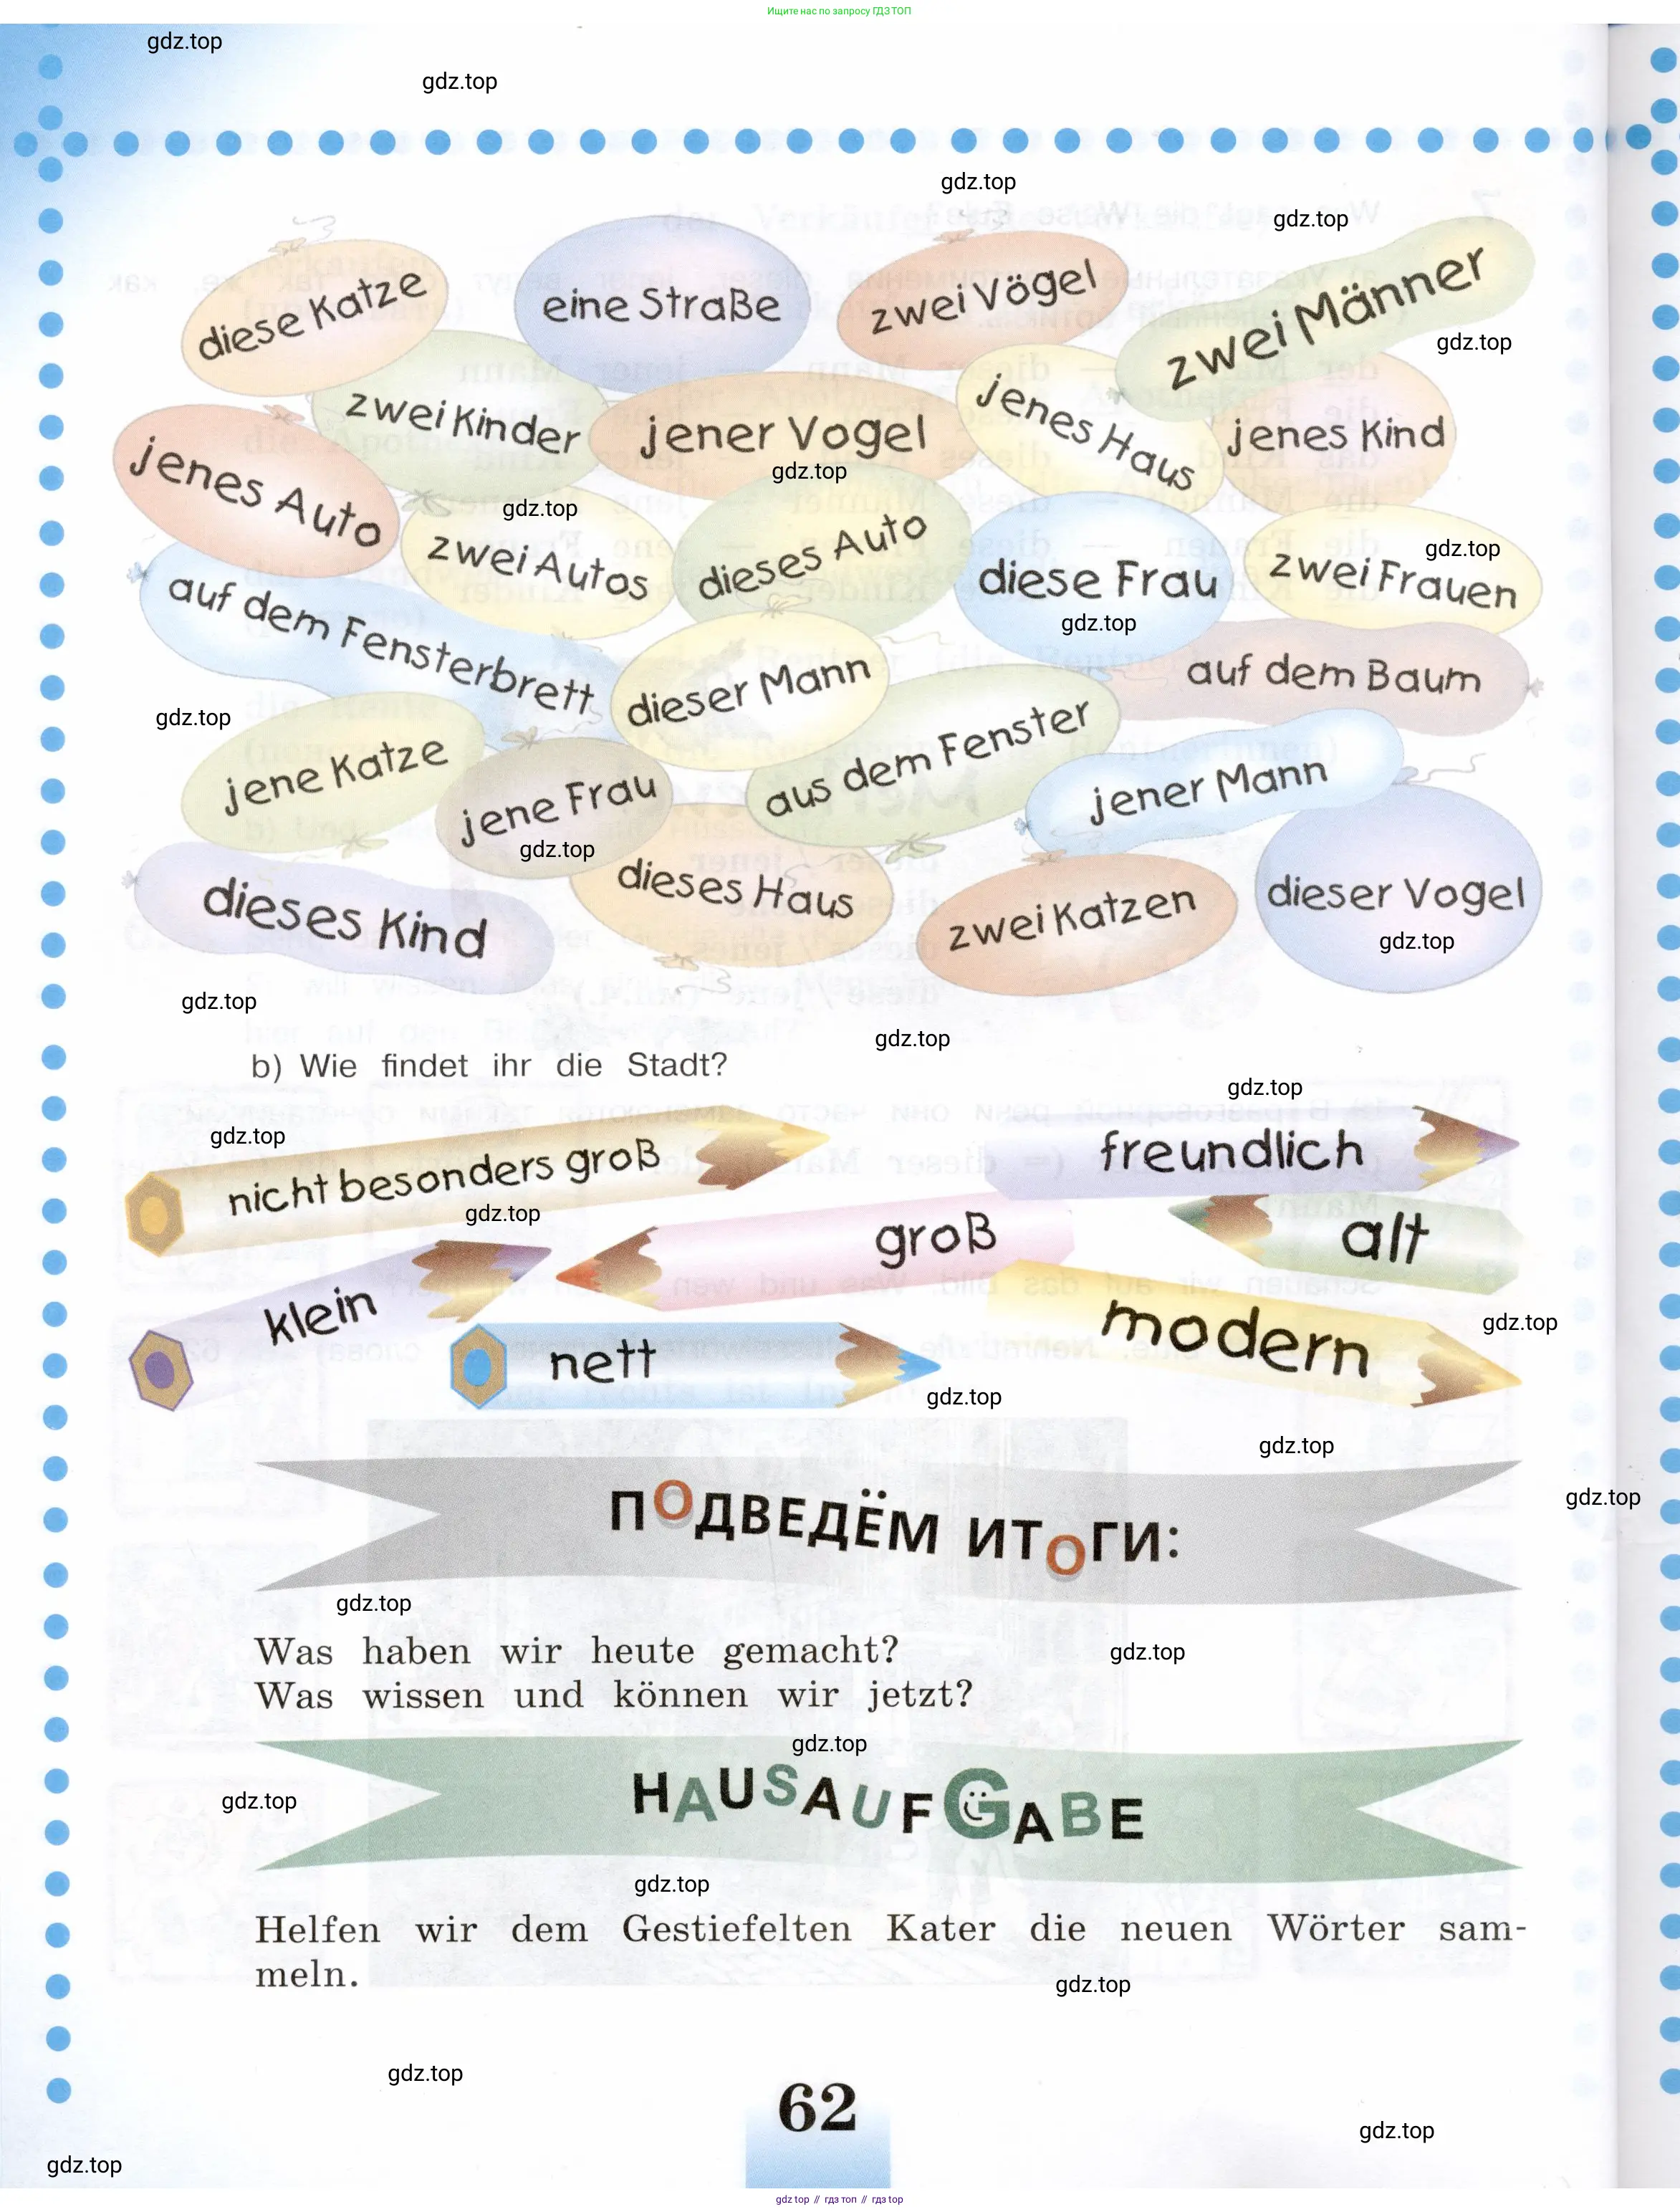 Ищите нас по запросу ГДЗ ТОП
gdz.top
gdz.top
gdz.top
gdz.top
diese Katze
eine Straße
zwei Vögel
zwei Männer
gdz.top
zwei Kinder
jener Vogel
jenes Haus
jenes Kind
gdz.top
jenes Auto
gdz.top
zwei Autos
dieses Auto
diese Frau
zwei Frauen
gdz.top
gdz.top
auf dem Fensterbrett
dieser Mann
auf dem Baum
gdz.top
jene Katze
jene Frau
aus dem Fenster
jener Mann
gdz.top
dieses Kind
dieses Haus
zwei Katzen
dieser Vogel
gdz.top
gdz.top
gdz.top
b) Wie findet ihr die Stadt?
gdz.top
gdz.top
nicht besonders groß
freundlich
gdz.top
groß
alt
klein
nett
modern
gdz.top
gdz.top
gdz.top
ПОДВЕДЁМ ИТОГИ:
gdz.top
gdz.top
Was haben wir heute gemacht?
gdz.top
Was wissen und können wir jetzt?
gdz.top
HAUSAUFGABE
gdz.top
gdz.top
Helfen wir dem Gestiefelten Kater die neuen Wörter sam-
meln.
gdz.top
gdz.top
62
gdz.top
gdz.top
gdz top // гдз топ // гдз top